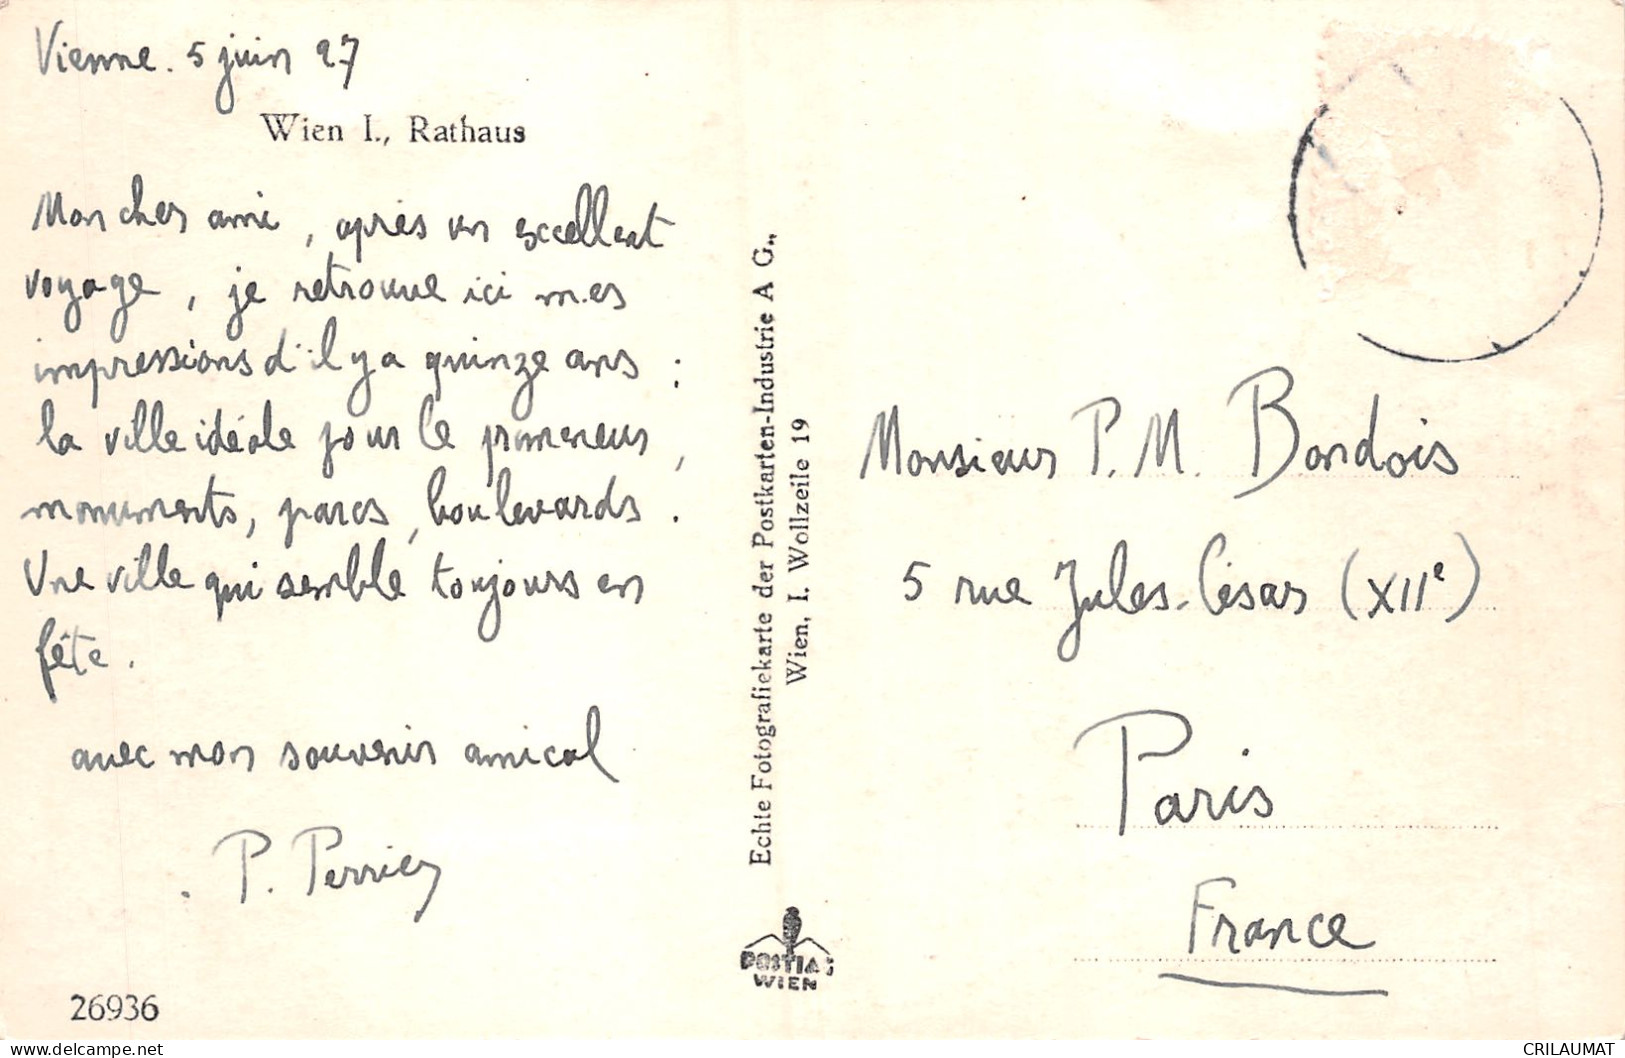 Vienne. 5 juin 27
Wien I., Rathaus
Mon cher ami, après un excellent
voyage, je retrouve ici mes
impressions d'il y a quinze ans :
la ville idéale pour le promeneur,
monuments, parcs, boulevards.
Une ville qui semble toujours en
fête.
avec mon souvenir amical
P. Perrier
26936
Echte Fotografiekarte der Postkarten-Industrie A G.,
Wien, I. Wollzeile 19
POSTIAG
WIEN
Monsieur P. M. Bondois
5 rue Jules-César (XIIe)
Paris
France
CRILAUMAT